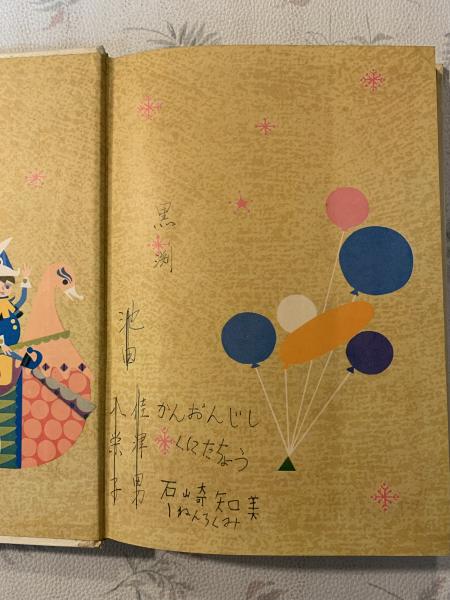 黒渕
池田
佳津男
栄子
かんおんじし
くにたちょう
石崎知美
1ねんろくみ